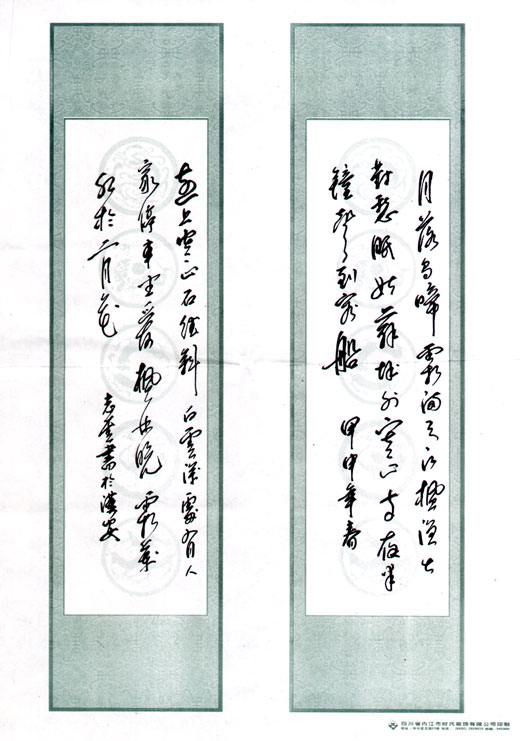 月落乌啼霜满天江枫渔火
对愁眠姑苏城外寒山寺夜半
钟声到客船 甲申年春
远上寒山石径斜白云深处有人
家停车坐爱枫林晚霜叶
红于二月花
志奎书于汉安
四川省内江市时代装饰有限公司印制